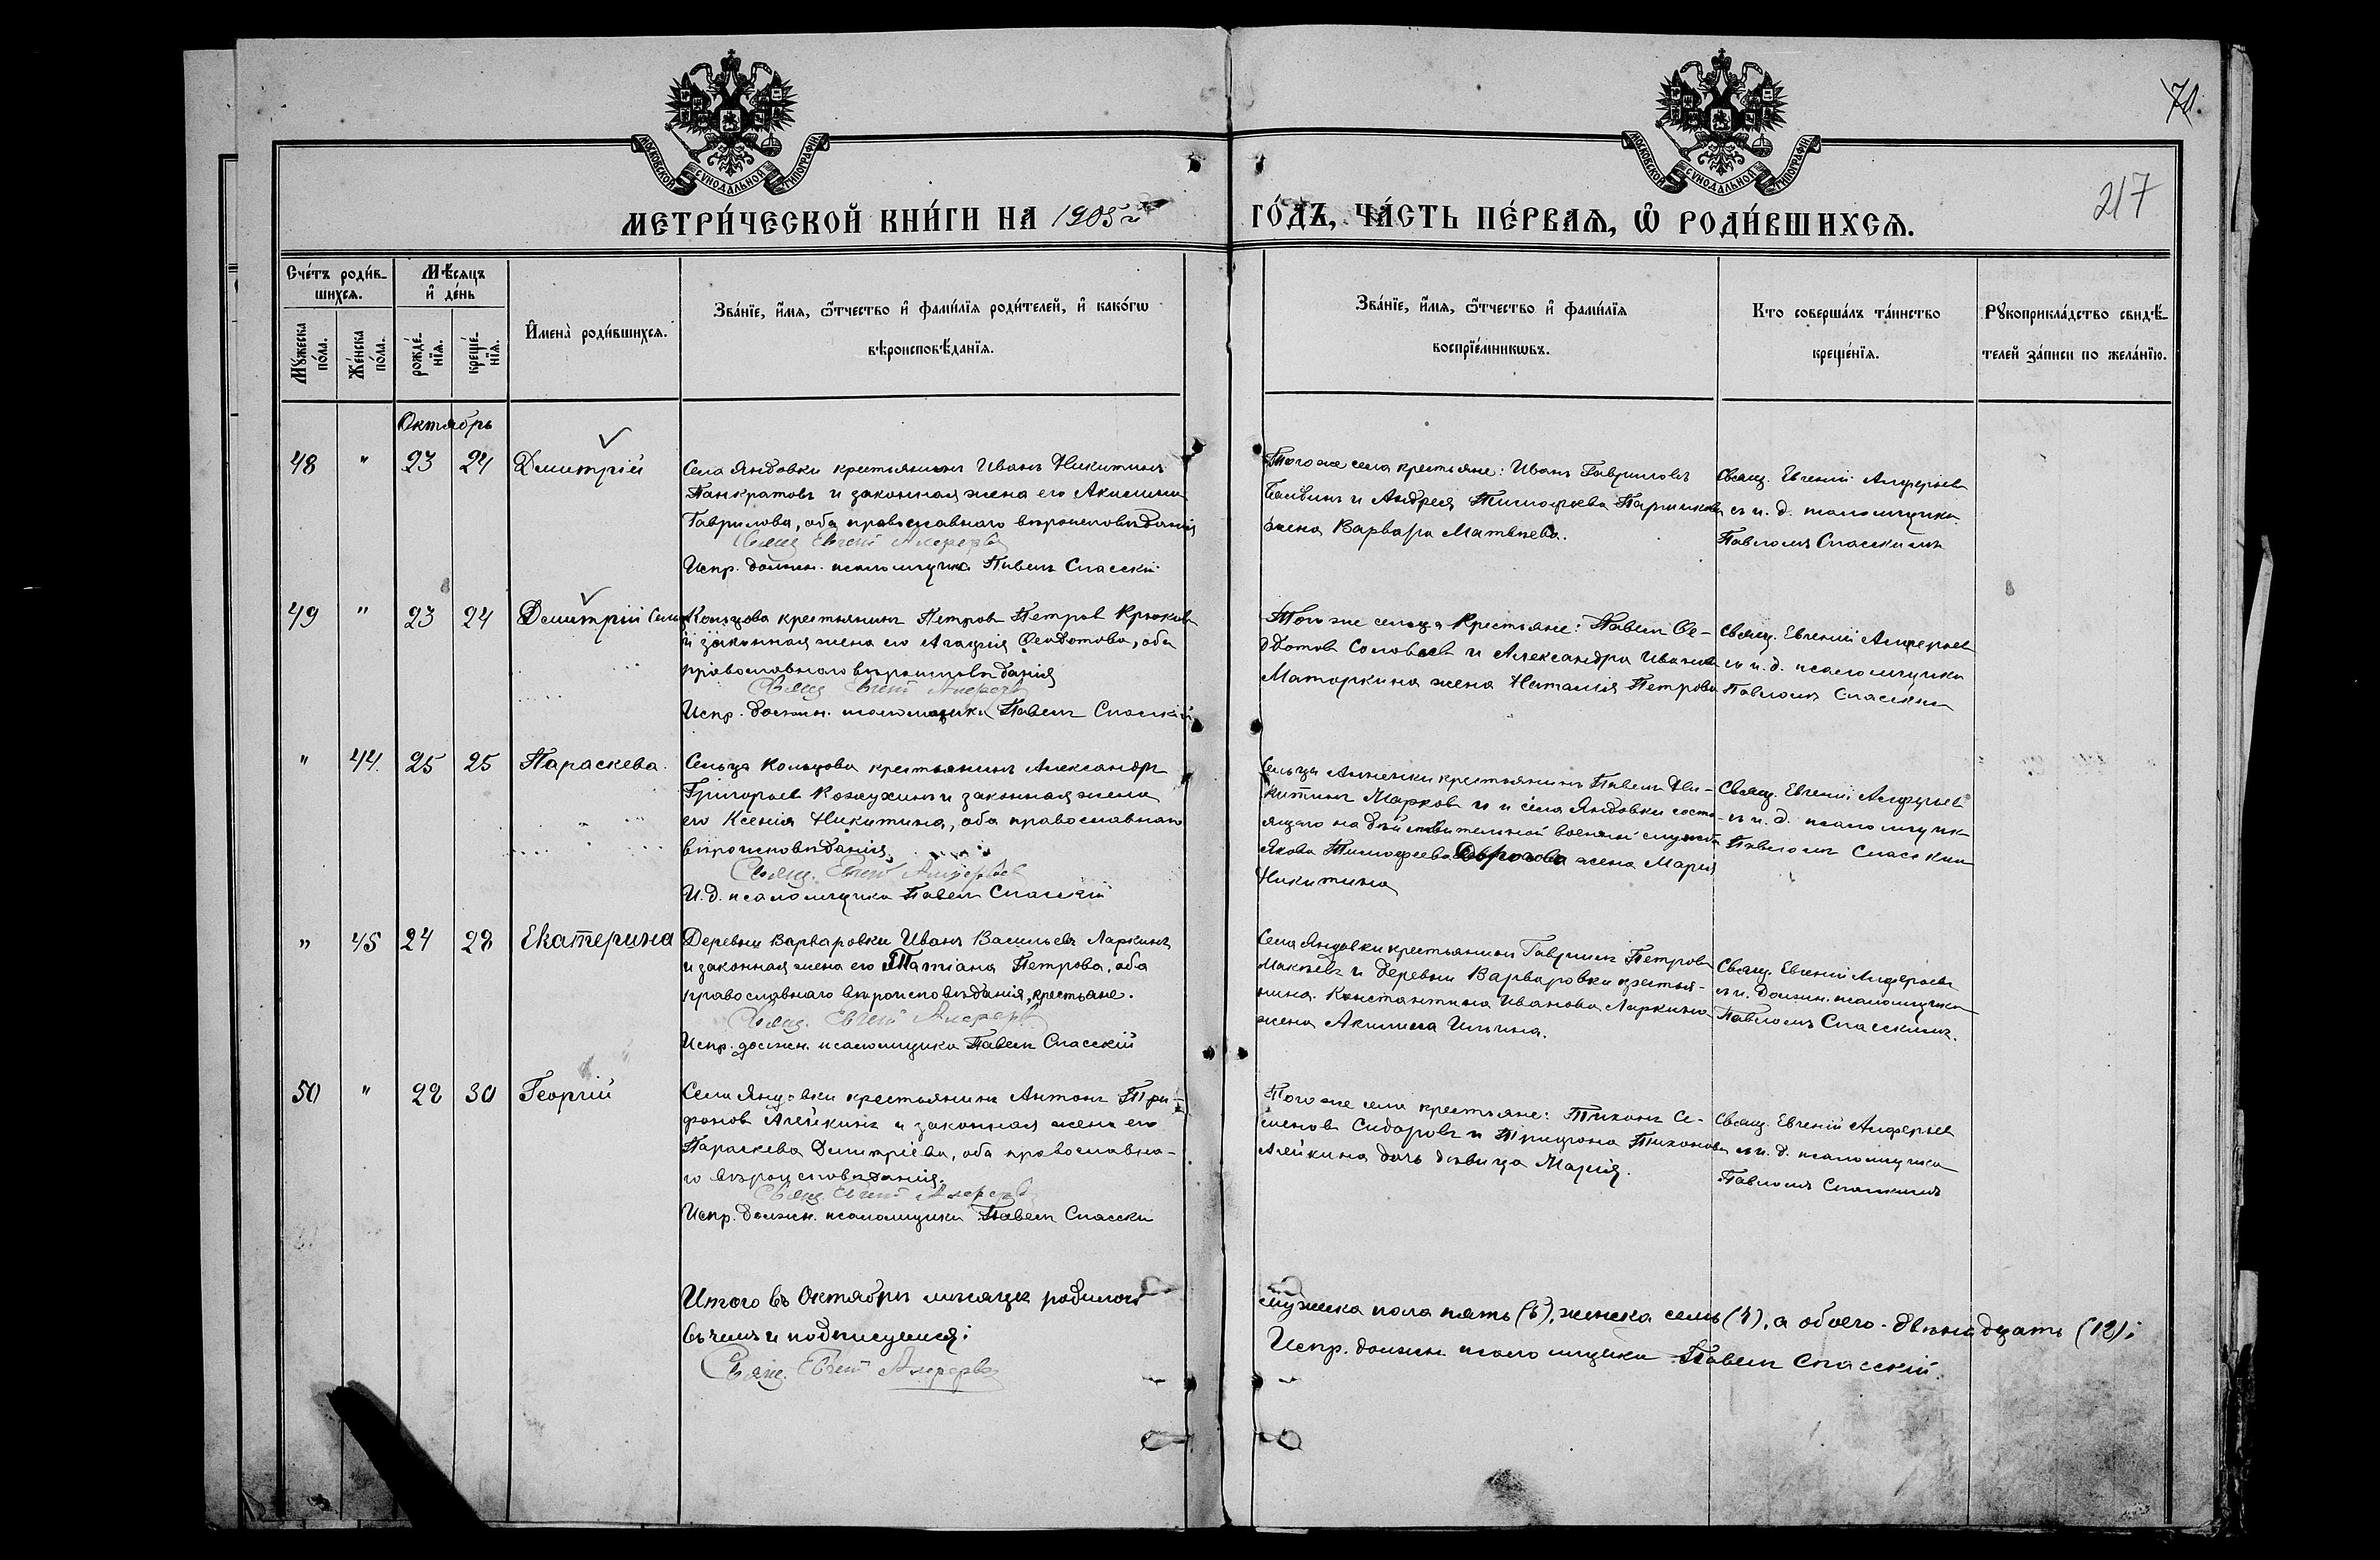 70.
217
МОСКОВСКОЙ СУНОДАЛЬНОЙ ТИПОГРАФІИ.
МОСКОВСКОЙ СУНОДАЛЬНОЙ ТИПОГРАФІИ.
МЕТРИ́ЧЕСКОЙ КНИ́ГИ НА 1905й ГО́ДЪ, ЧА́СТЬ ПЕ́РВАѦ, Ѡ҆ РОДИ́ВШИХСѦ.
Сче́тъ роди́в-
шихсѧ.
Мꙋжеска
по́ла.
Же́нска
по́ла.
Мѣ́сѧцъ
и҆ де́нь
рожде́-
нїѧ.
креще́-
нїѧ.
И҆мена̀ роди́вшихсѧ.
Зва́нїе, и҆́мѧ, ѻ҆́тчество и҆ фами́лїѧ роди́телей, и҆ како́гѡ
вѣроисповѣ́данїѧ.
Зва́нїе, и҆́мѧ, ѻ҆́тчество и҆ фами́лїѧ
воспрїе́мникѡвъ.
Кто соверша́лъ та́инство
креще́нїѧ.
Рꙋкоприкла́дство свидѣ́-
телей за́писи по жела́нїю.
Октябрь
48 " 23 24 Димитрій
Села Яндовки крестьянинъ Иванъ Никитинъ
Панкратовъ и законная жена его Акилина
Гаврилова, оба православнаго вѣроисповѣданія
Свящ. Евгеній Алферьевъ
Испр. должн. псаломщика Павелъ Спасскій
Того же села крестьяне: Иванъ Гавриловъ
и Андрея Тимофеева
жена Варвара Матвѣева.
Свящ. Евгеній Алферьевъ
съ и. д. псаломщика
Павломъ Спасскимъ
49 " 23 24 Димитрій
Сельца Кольцова крестьянинъ Петръ Петровъ Крюковъ
и законная жена его Агафія Ѳеодотова, оба
православнаго вѣроисповѣданія
Свящ. Евгеній Алферьевъ
Испр. должн. псаломщика Павелъ Спасскій
Того же сельца крестьяне: Павелъ Ѳе-
дотовъ Соловьевъ и Александра Иванова
Маторкина жена Наталія Петрова
Свящ. Евгеній Алферьевъ
съ и. д. псаломщика
Павломъ Спасскимъ
" 44 25 25 Параскева.
Сельца Кольцова крестьянинъ Александръ
Григорьевъ Кожухинъ и законная жена
его Ксенія Никитина, оба православнаго
вѣроисповѣданія.
Свящ. Евгеній Алферьевъ
И. д. псаломщика Павелъ Спасскій
Сельца Анненки крестьянинъ Павелъ Ни-
китинъ Марковъ и села Яндовки состо-
ящаго на дѣйствительной военной службѣ
Якова Тимофеева жена Марія
Никитина
Свящ. Евгеній Алферьевъ
съ и. д. псаломщика
Павломъ Спасскимъ
" 45 24 28 Екатерина
Деревни Варваровки Иванъ Васильевъ Ларкинъ
и законная жена его Татіана Петрова, оба
православнаго вѣроисповѣданія, крестьяне.
Свящ. Евгеній Алферьевъ
Испр. должн. псаломщика Павелъ Спасскій
Села Яндовки крестьянинъ Гавриилъ Петровъ
и деревни Варваровки крестья-
нина Константина Иванова Ларкина
жена Акилина Ильина.
Свящ. Евгеній Алферьевъ
съ и. должн. псаломщика
Павломъ Спасскимъ.
50 " 28 30 Георгій
Села Яндовки крестьянинъ Антонъ Три-
фоновъ Алейкинъ и законная жена его
Параскева Димитріева, оба православна-
го вѣроисповѣданія.
Свящ. Евгеній Алферьевъ
Испр. должн. псаломщика Павелъ Спасскій
Того же села крестьяне: Тихонъ Се-
меновъ Сидоровъ и Трифона Тихонова
Алейкина дочь дѣвица Марія.
Свящ. Евгеній Алферьевъ
съ и. д. псаломщика
Павломъ Спасскимъ
Итого въ Октябрѣ мѣсяцѣ родилось мужеска пола пять (5), женска семь (7), а обоего двѣнадцать (12);
въ чемъ и подписуемся:
Свящ. Евгеній Алферьевъ
Испр. должн. псаломщика Павелъ Спасскій.